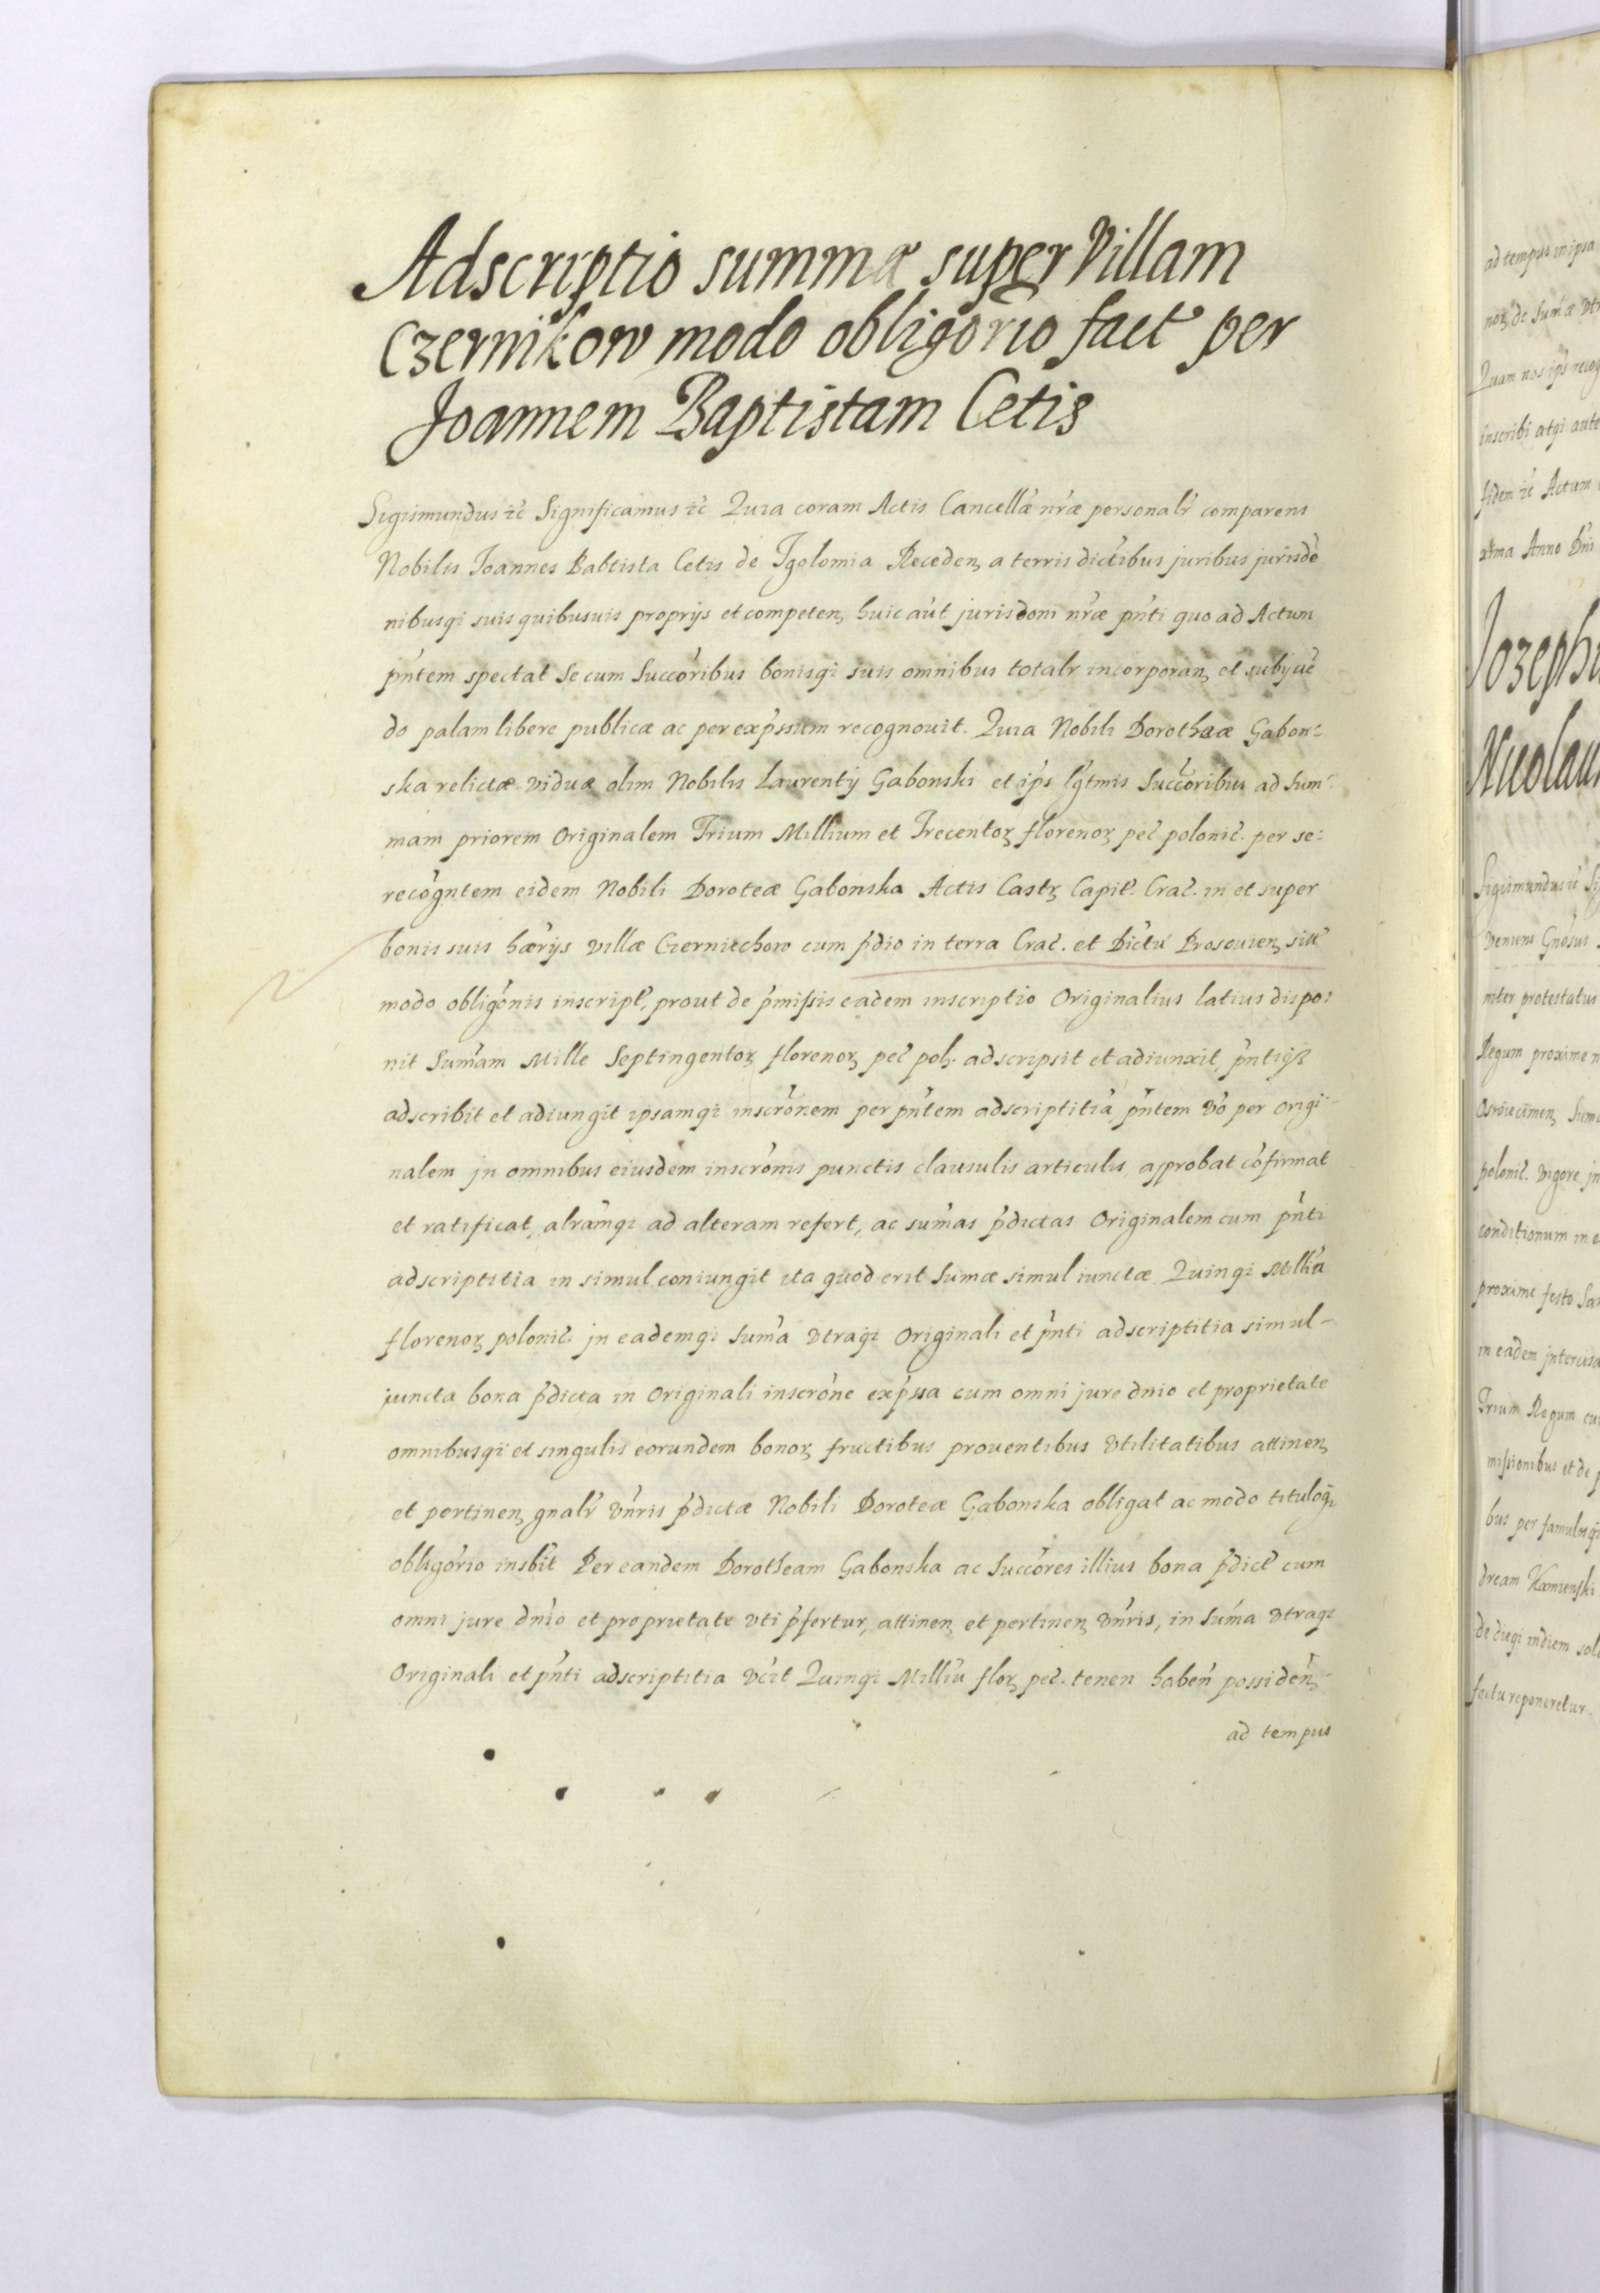 Adscriptio summæ super Villam
Czernikow modo obligorio fact per
Joannem Baptistam Cetis
Sigismundus &c Significamus &c Quia coram Actis Cancellæ nræ personalr comparens
Nobilis Joannes Babtista Cetis de Igolomia Receden, a terris dictibus juribus jurisdo
nibusqi suis quibusuis proprijs et competen, huic aut jurisdoni nræ pnti quo ad Actum
pntem spectat Se cum Succoribus bonisqi suis omnibus totalr incorporan, et subijue
do palam libere publicæ ac per expssum recognouit. Quia Nobili Dorothææ Gabon-
ska relictæ viduæ olim Nobilis Laurentij Gabonski et ips lgtmis Succoribus ad Sum-
mam priorem Originalem Trium Millium et Trecentor florenor pec polonic. per se-
recogntem eidem Nobili Doroteæ Gabonska Actis Castr Capit. Crac. in et super
bonis suis hærijs villæ Czerniechow cum pdio in terra Crac. et Dictu Prosouien, sitt
modo obligonis inscript, prout de pmissis eadem inscriptio Originalius latius dispo-
nit Sumam Mille Septingentor florenor pec pol, adscripsit et adiunxit, pntijß
adscribit et adiungit ipsamqi inscronem per pntem adscriptitia pntem vo per origi-
nalem jn omnibus eiusdem inscronis punctis clausulis articulis, approbat cofirmat
et ratificat, alramqi ad alteram refert, ac sumas pdictas Originalem cum pnti
adscriptitia in simul coniungit ita quod erit Sumæ simul iunctæ Quinqi Millia
florenor polonic. jn eademqi Suma vtraqi Originali et pnti adscriptitia simul-
juncta bona pdicta in Originali inscrone expssa cum omni jure dnio et proprietate
omnibusqi et singulis eorundem bonor fructibus prouentibus vtilitatibus attinen,
et pertinen, gnalr vnris pdictæ Nobili Doroteæ Gabonska obligat ac modo tituloqi
obligorio insbit Per eandem Dorotheam Gabonska ac Succores illius bona pdict cum
omni jure dnio et proprietate vti pfertur, attinen, et pertinen, vnris, in Suma vtraqi
Originali et pnti adscriptitia vcit Quinqi Milliu flor, pec. tenen haben possiden,
ad tempus
ad tempus in ipsa
Quam nos ips
inscribi atqi
fidem &c Actum
Anno Dni
Jozeph
Nicolau
Sigismundus &c
niter protestatus
Regum proxime
polonic. vigore jn
conditionum in
proxime festo
in eadem
Trium Regum
missionibus et de
bus per famulosqi
dream Kamienski
de dieqi indiem
factu reponeretur.